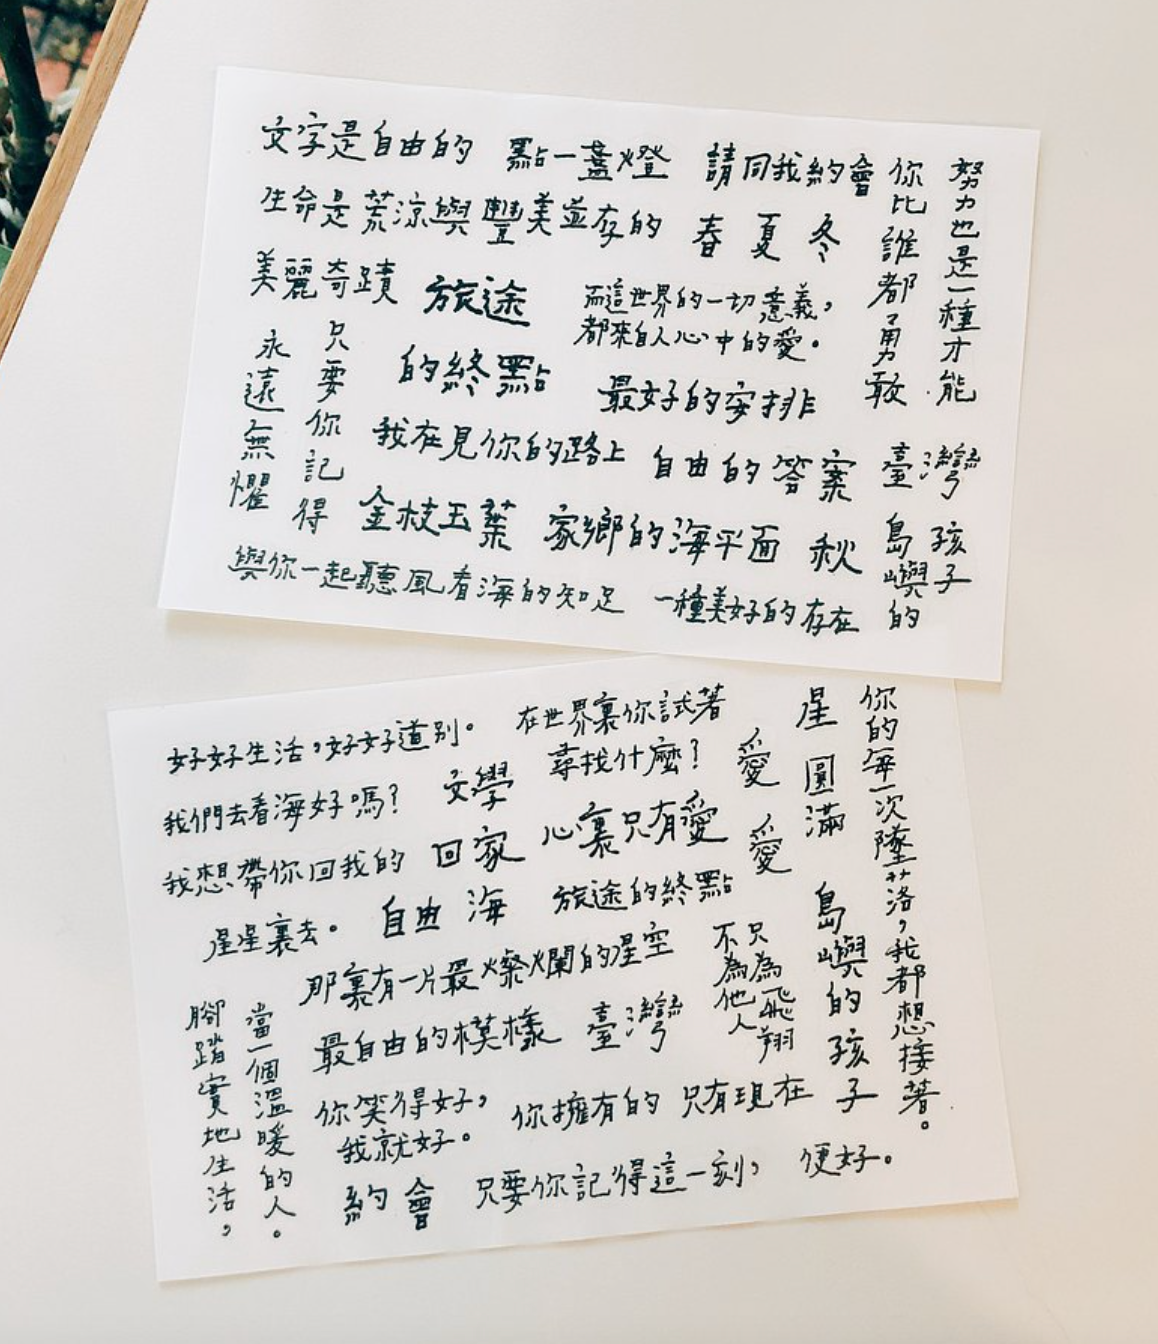 文字是自由的
點一盞燈
請同我約會
你比誰都勇敢
努力也是一種才能
生命是荒涼與豐美並存的
春 夏 冬
美麗奇蹟
旅途
而這世界的一切意義，
都來自人心中的愛。
只要你記得
永遠無懼
的終點
最好的安排
我在見你的路上
自由的答案
臺灣
金枝玉葉
家鄉的海平面
秋
島嶼的
孩子
與你一起聽風看海的知足
一種美好的存在
好好生活，好好道別。
在世界裏你試著
尋找什麼？
星
圓滿
你的每一次墜落，我都想接著。
我們去看海好嗎？
文學
愛
愛
我想帶你回我的
星星裏去。
回家
心裏只有愛
自由
海
旅途的終點
島嶼的孩子
那裏有一片最燦爛的星空
只為飛翔
不為他人
最自由的模樣
臺灣
當一個溫暖的人。
腳踏實地生活。
你笑得好，
我就好。
你擁有的
只有現在
約會
只要你記得這一刻，
便好。